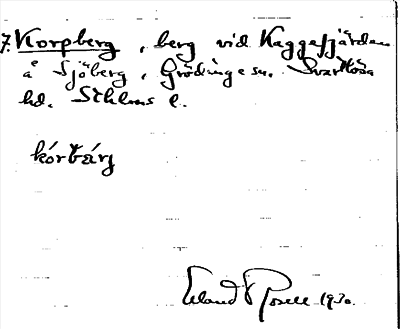 7. Korpberg, berg vid Kaggefjärden
å Sjöberg, Grödinge sn. Svartlösa
hd. Sthlms l.
kórbärj
Erland Rosell 1930.